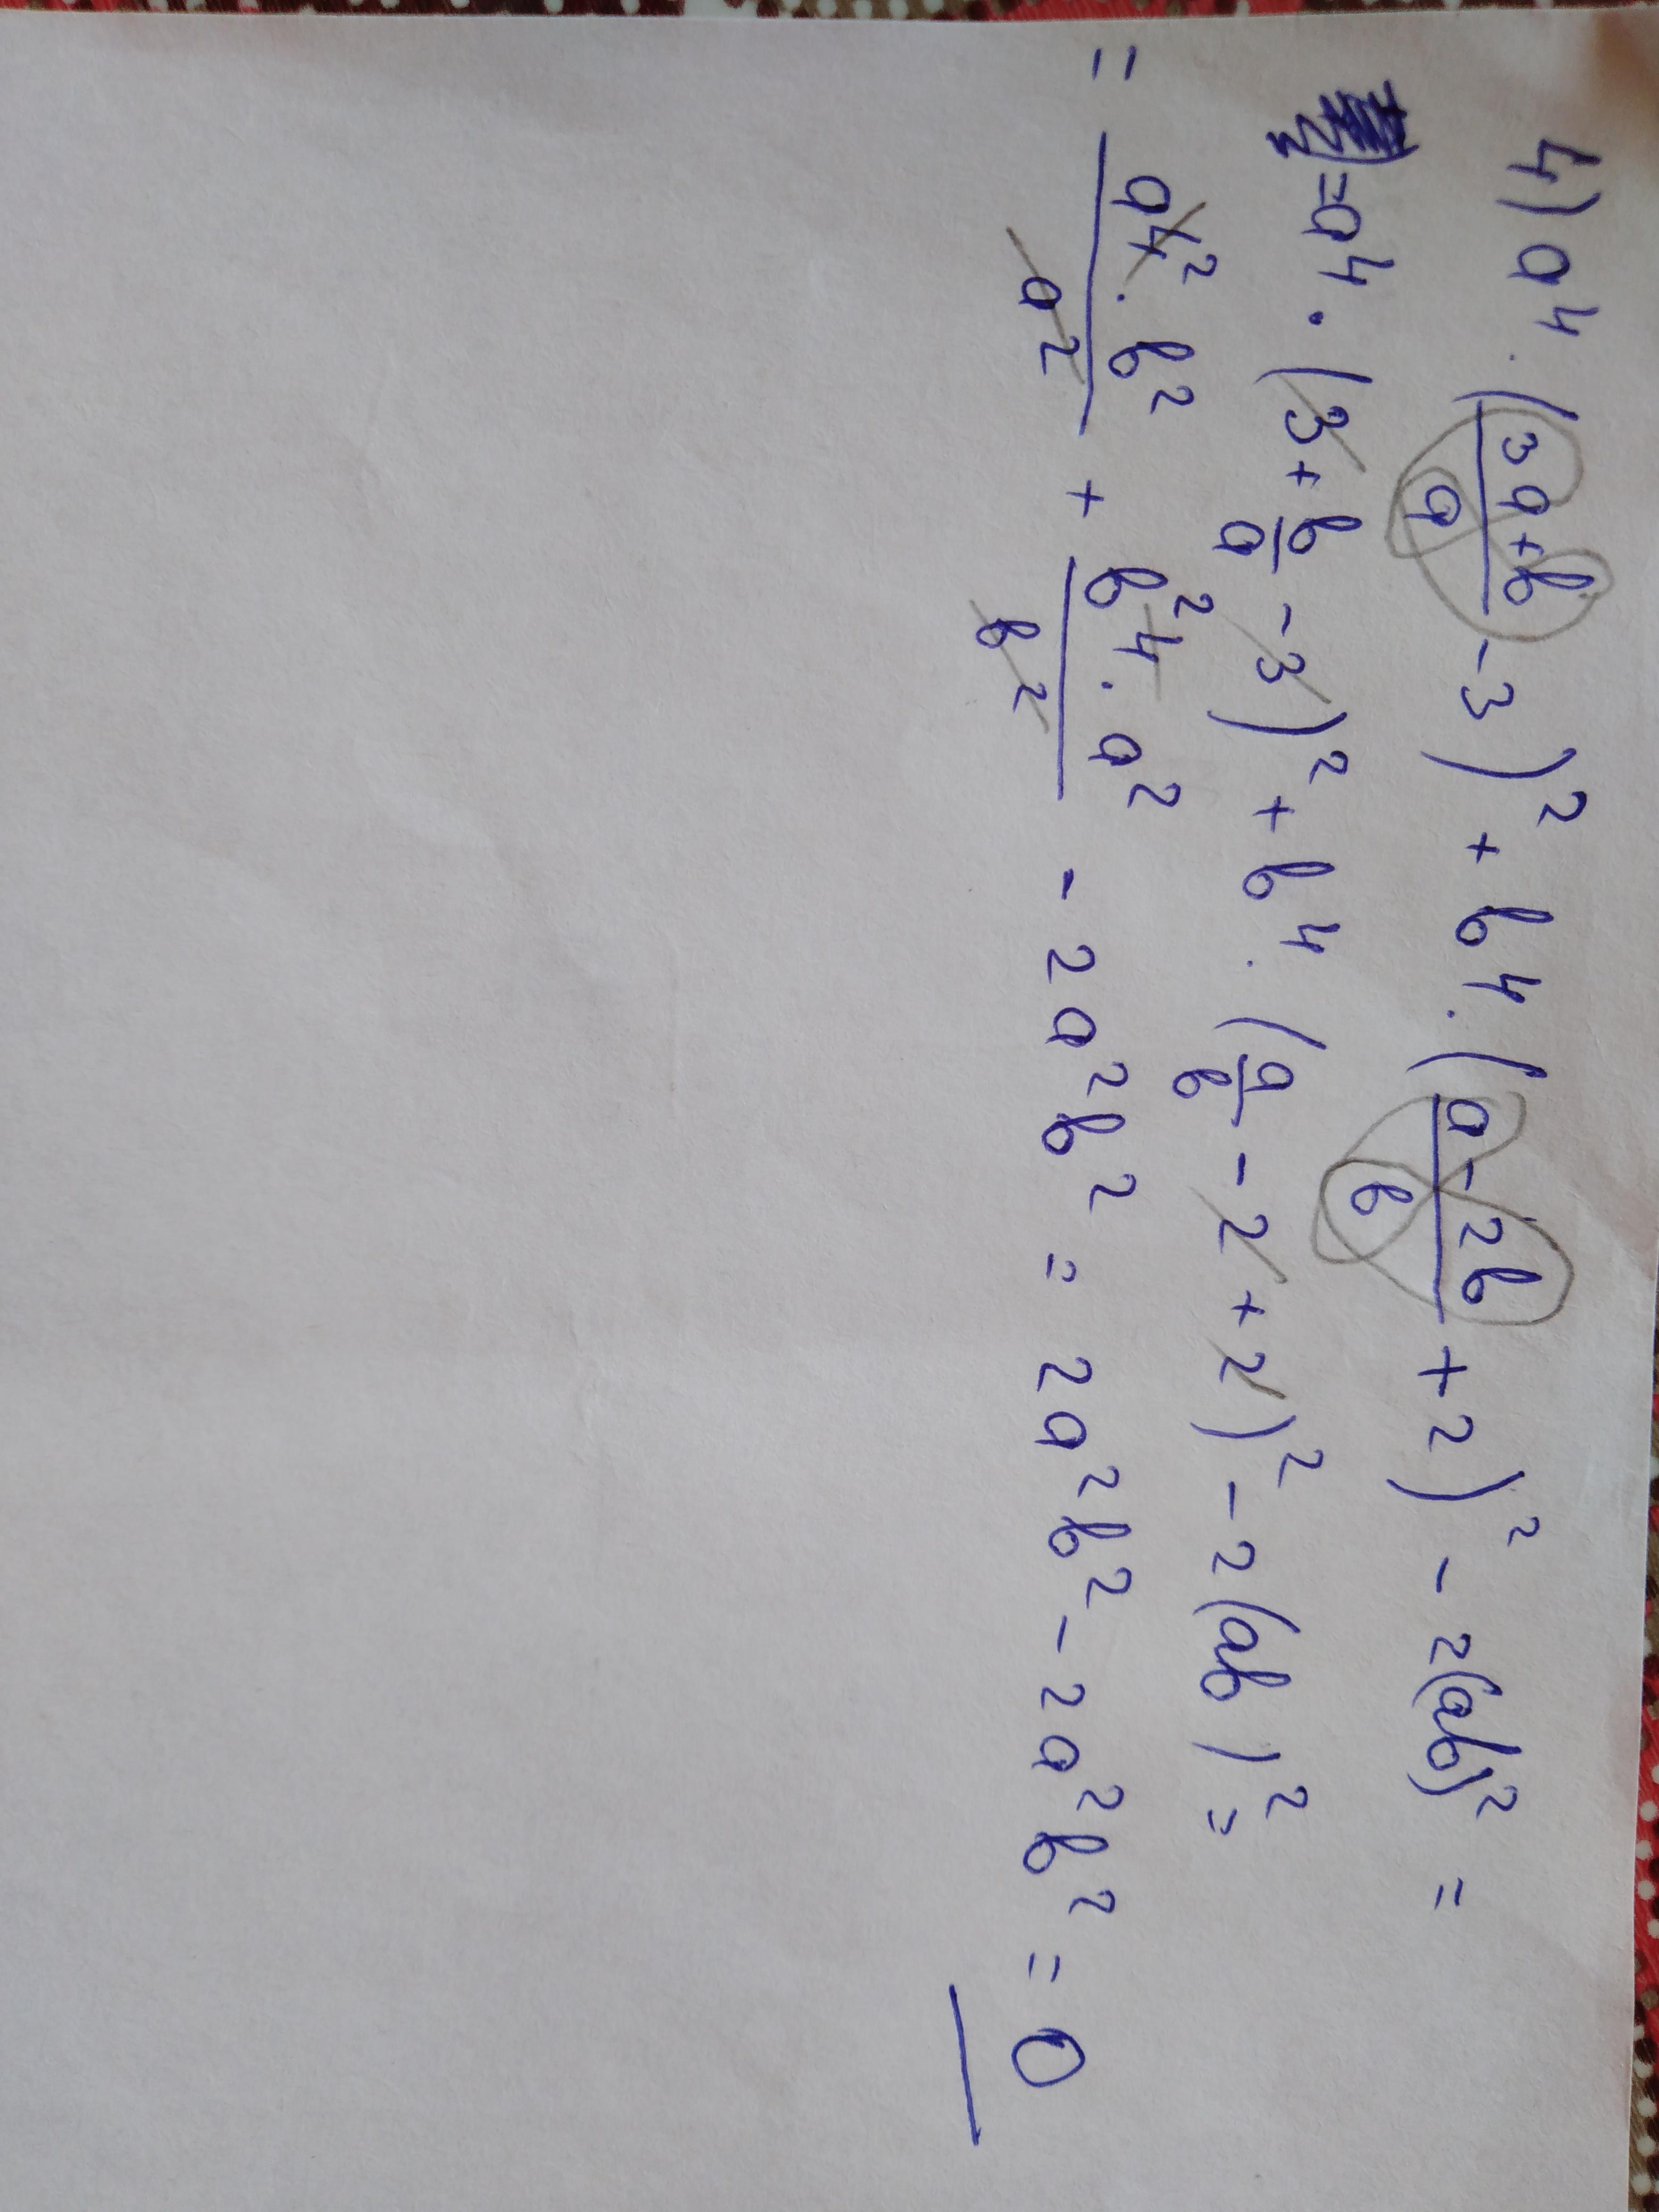 4) a⁴·((3a+b)/a - 3)² + b⁴·((a-2b)/b + 2)² - 2(ab)² =
= a⁴·(3 + b/a - 3)² + b⁴·(a/b - 2 + 2)² - 2(ab)² =
= (a⁴²·b²)/a² + (b²⁴·a²)/b² - 2a²b² = 2a²b² - 2a²b² = 0